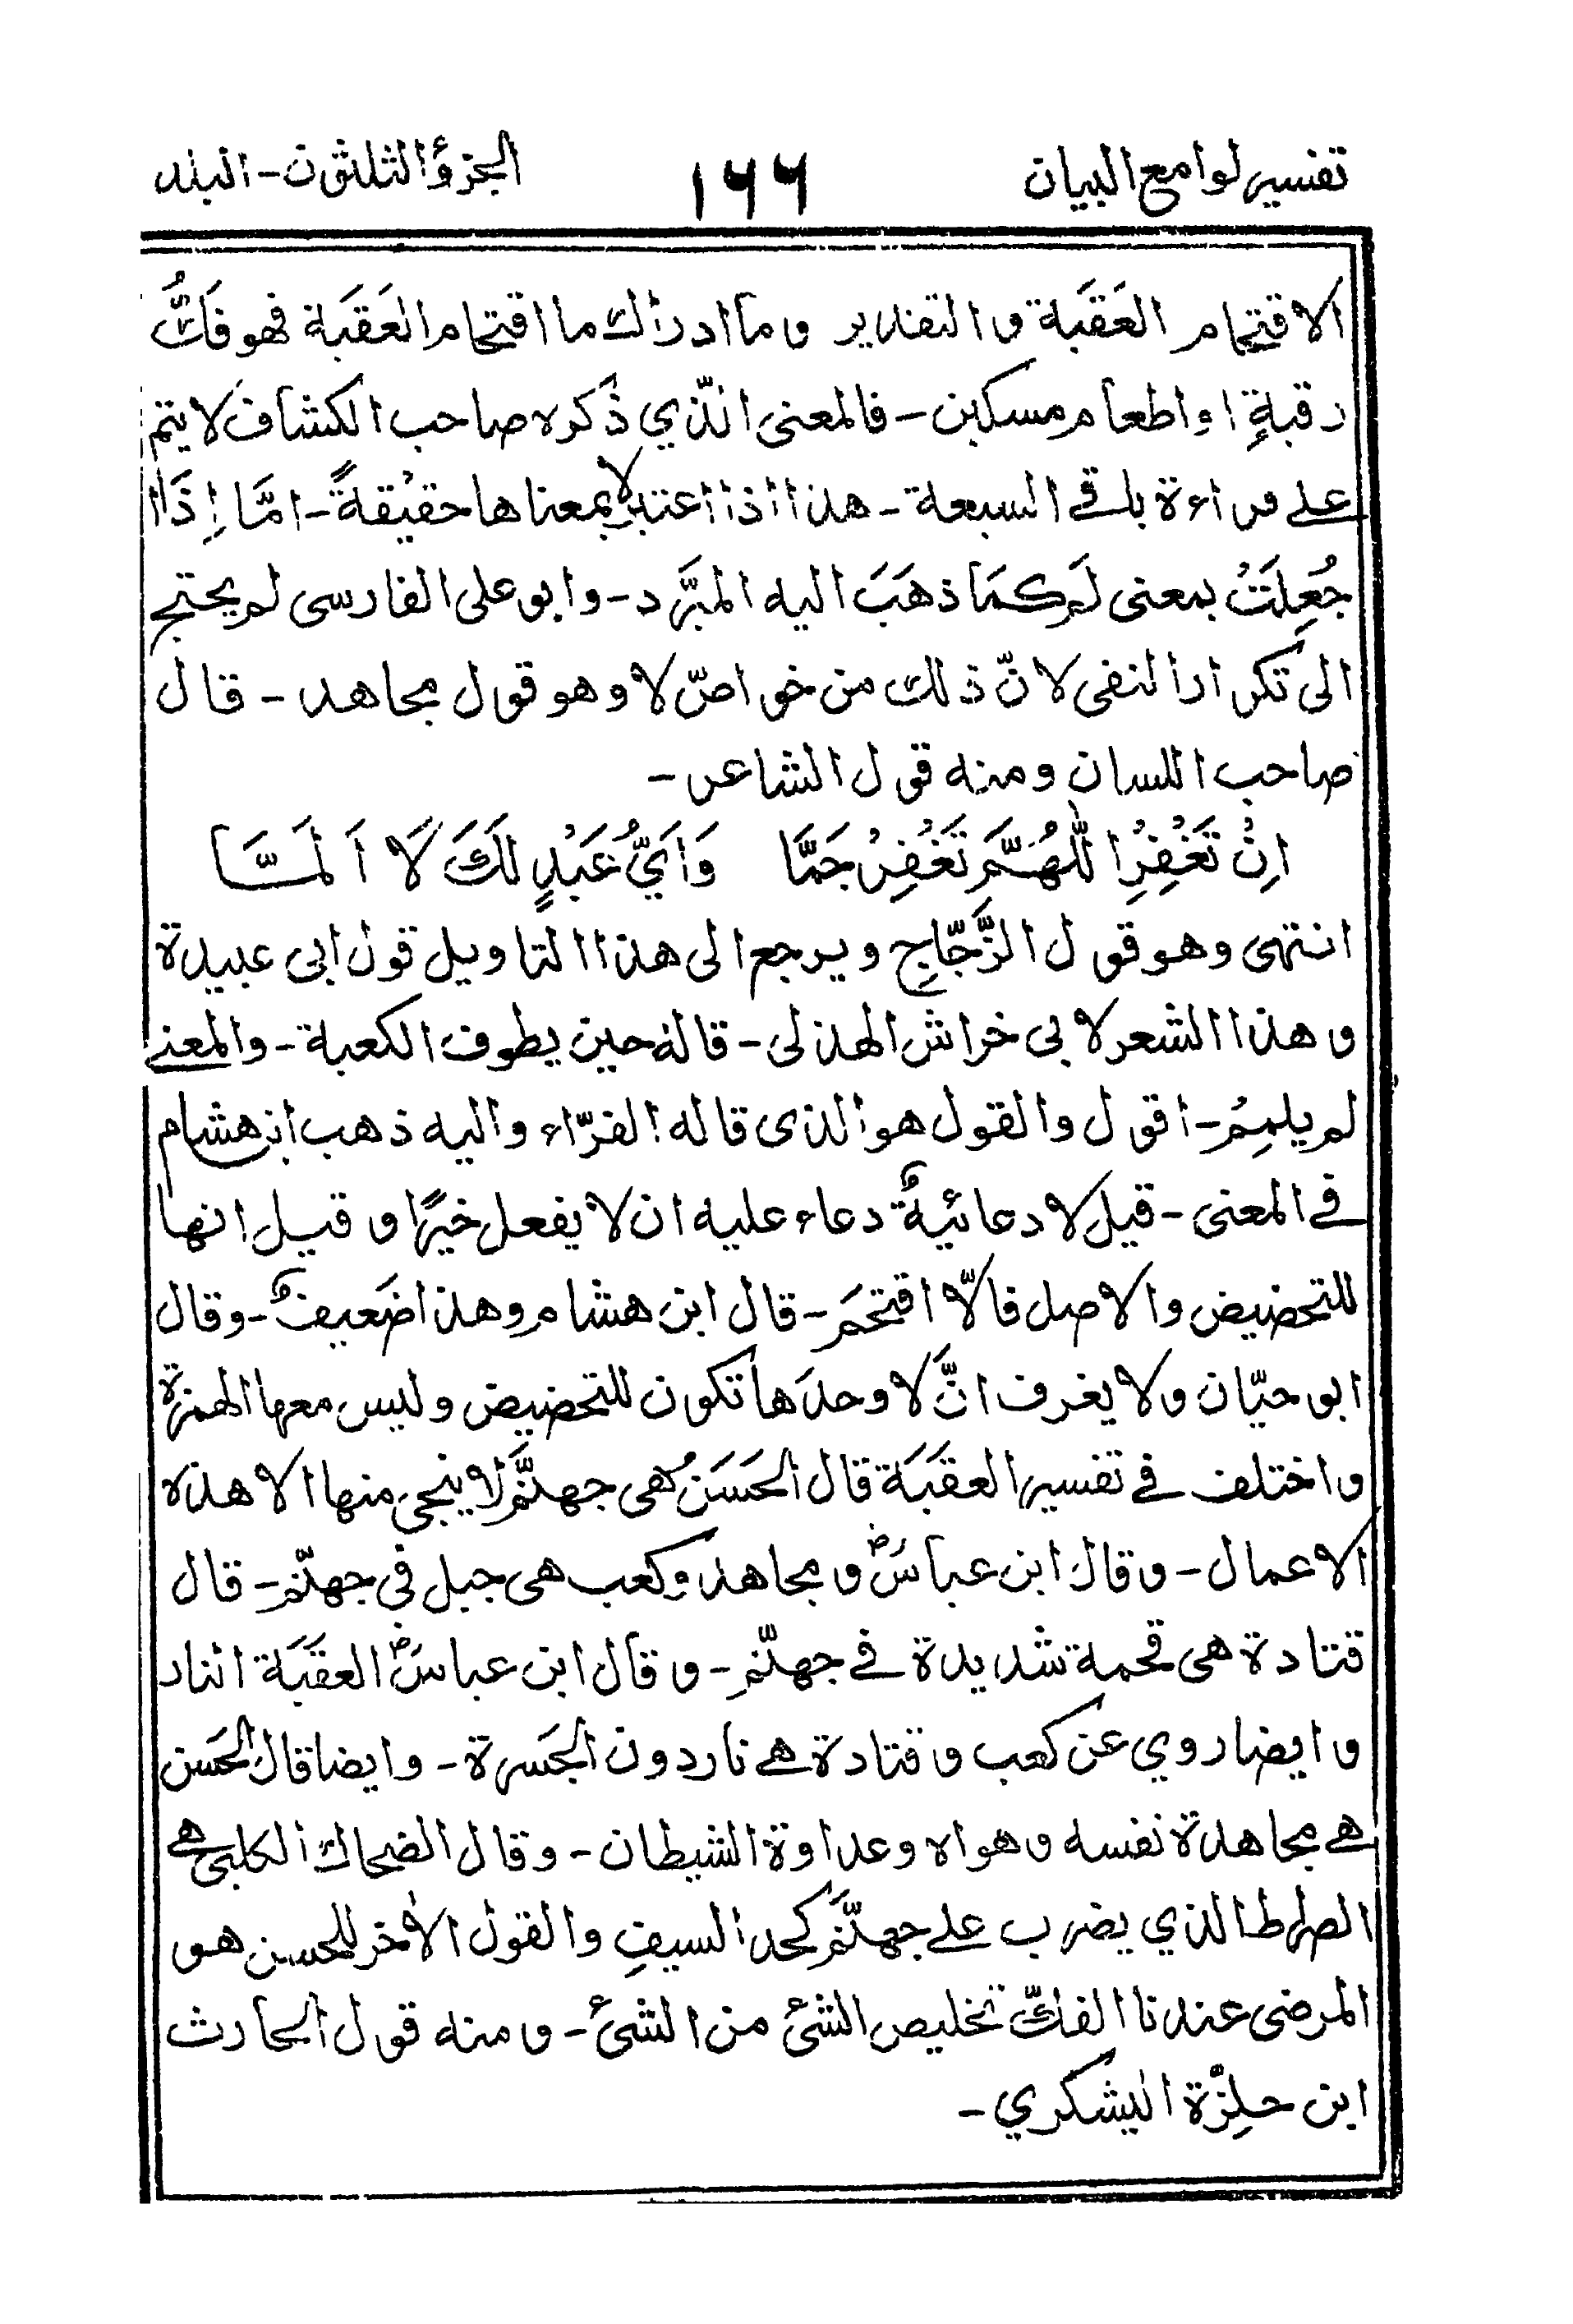 تفسير لوامع البيان ١٦٦ الجزؤ الثلثون - البلد
الاقتحام العَقَبَة والتقدير وما ادراك ما اقتحام العَقَبَة فهو فَكُّ
رقبةٍ او اطعام مسكين - فالمعنى الذي ذَكره صاحب الكشاف لا يتم
على قراءة باقي السبعة - هذا اذا اعتبر لا بمعناها حقيقةً - امَّا اِذَا
جُعِلَتْ بمعنى لَم كَمَا ذهَبَ اليه المبَرَّد - وابو على الفارسى لم يحتج
الى تكرار النفى لانّ ذلك من خواصّ لا وهو قول مجاهد - قال
صاحب اللسان ومنه قول الشاعر -
اِنْ تَغْفِرِ اللّٰهُمَّ تَغْفِرْ جَمَّا وَاَيُّ عَبْدٍ لَكَ لَا اَلَمَّا
انتهى وهو قول الزَّجّاجِ ويرجع الى هذا التاويل قول ابى عبيدة
وهذا الشعر لابي خراش الهذلى - قاله حين يطوف الكعبة - والمعنى
لم يلمِمْ - اقول والقول هو الذى قاله الفرّاء واليه ذهب ابن هشام
في المعنى - قيل لا دعائيةٌ دعاء عليه ان لا يفعل خيرًا وقيل انها
للتحضيض والاصل فالّا اقتحَم - قال ابن هشام وهذا ضَعيفٌ - وقال
ابو حيّان ولا يعرف انَّ لا وحدَها تكون للتحضيض وليس معها الهمزة
واختلف في تفسير العقَبَة قال الحَسَنُ هى جهنَّم لا ينجي منها الا هذه
الاعمال - وقال ابن عباسؓ ومجاهد وكعب هى جبل فى جهنّم - قال
قتادة هى قحمة شديدة في جهنّم - وقال ابن عباسؓ العقَبَة النار
وايضا روي عن كعب وقتادة هي نار دون الجَسرة - وايضا قال الحَسن
هي مجاهدة نفسه وهواه وعداوة الشيطان - وقال الضحاك الكلبي هي
الصراط الذي يضرب على جهنَّم كحد السيفِ والقول الأخر للحسن هو
المرضى عندنا الفكّ تخليص الشئ من الشئ - ومنه قول الحارث
ابن حلِزّة اليشكري -